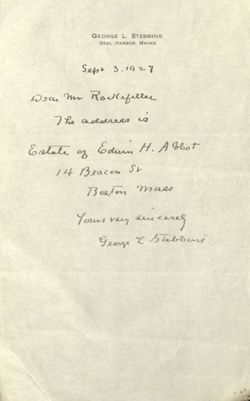 GEORGE L. STEBBINS
SEAL HARBOR, MAINE
Sept 3. 1927
Dear Mr Rockefeller
The address is
Estate of Edwin H. Abbot
14 Beacon St
Boston Mass
Yours very sincerely
George L Stebbins